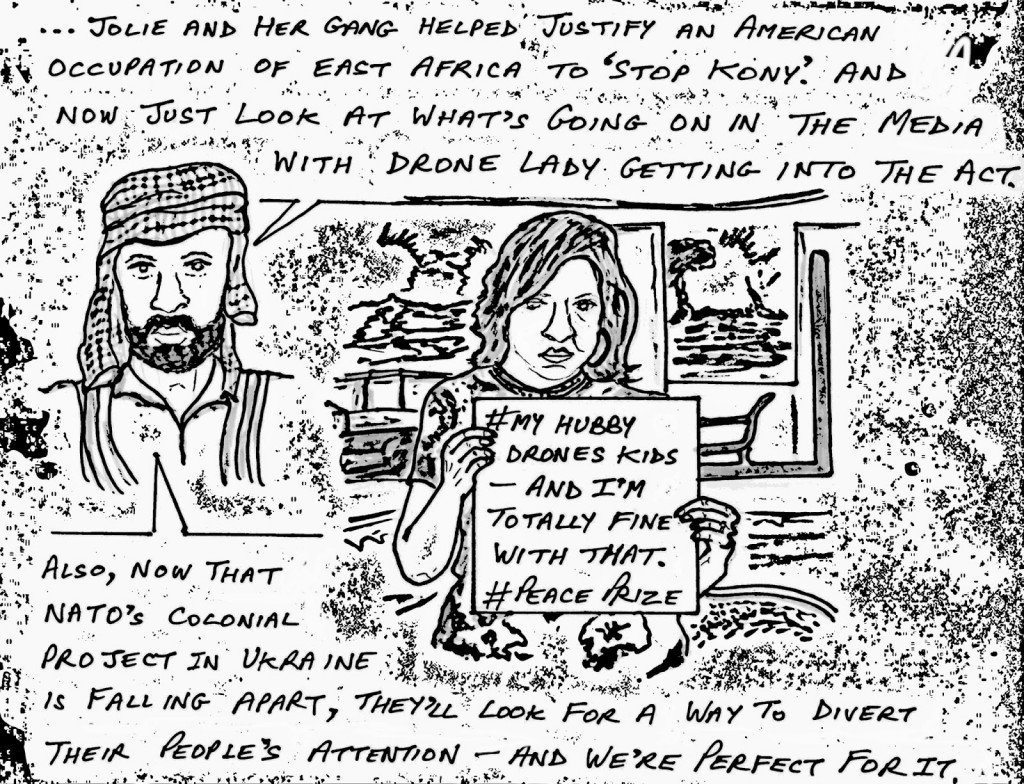 ... JOLIE AND HER GANG HELPED JUSTIFY AN AMERICAN
OCCUPATION OF EAST AFRICA TO 'STOP KONY'. AND
NOW JUST LOOK AT WHAT'S GOING ON IN THE MEDIA
WITH DRONE LADY GETTING INTO THE ACT.
#MY HUBBY
DRONES KIDS
— AND I'M
TOTALLY FINE
WITH THAT.
#PEACE PRIZE
ALSO, NOW THAT
NATO'S COLONIAL
PROJECT IN UKRAINE
IS FALLING APART, THEY'LL LOOK FOR A WAY TO DIVERT
THEIR PEOPLE'S ATTENTION — AND WE'RE PERFECT FOR IT